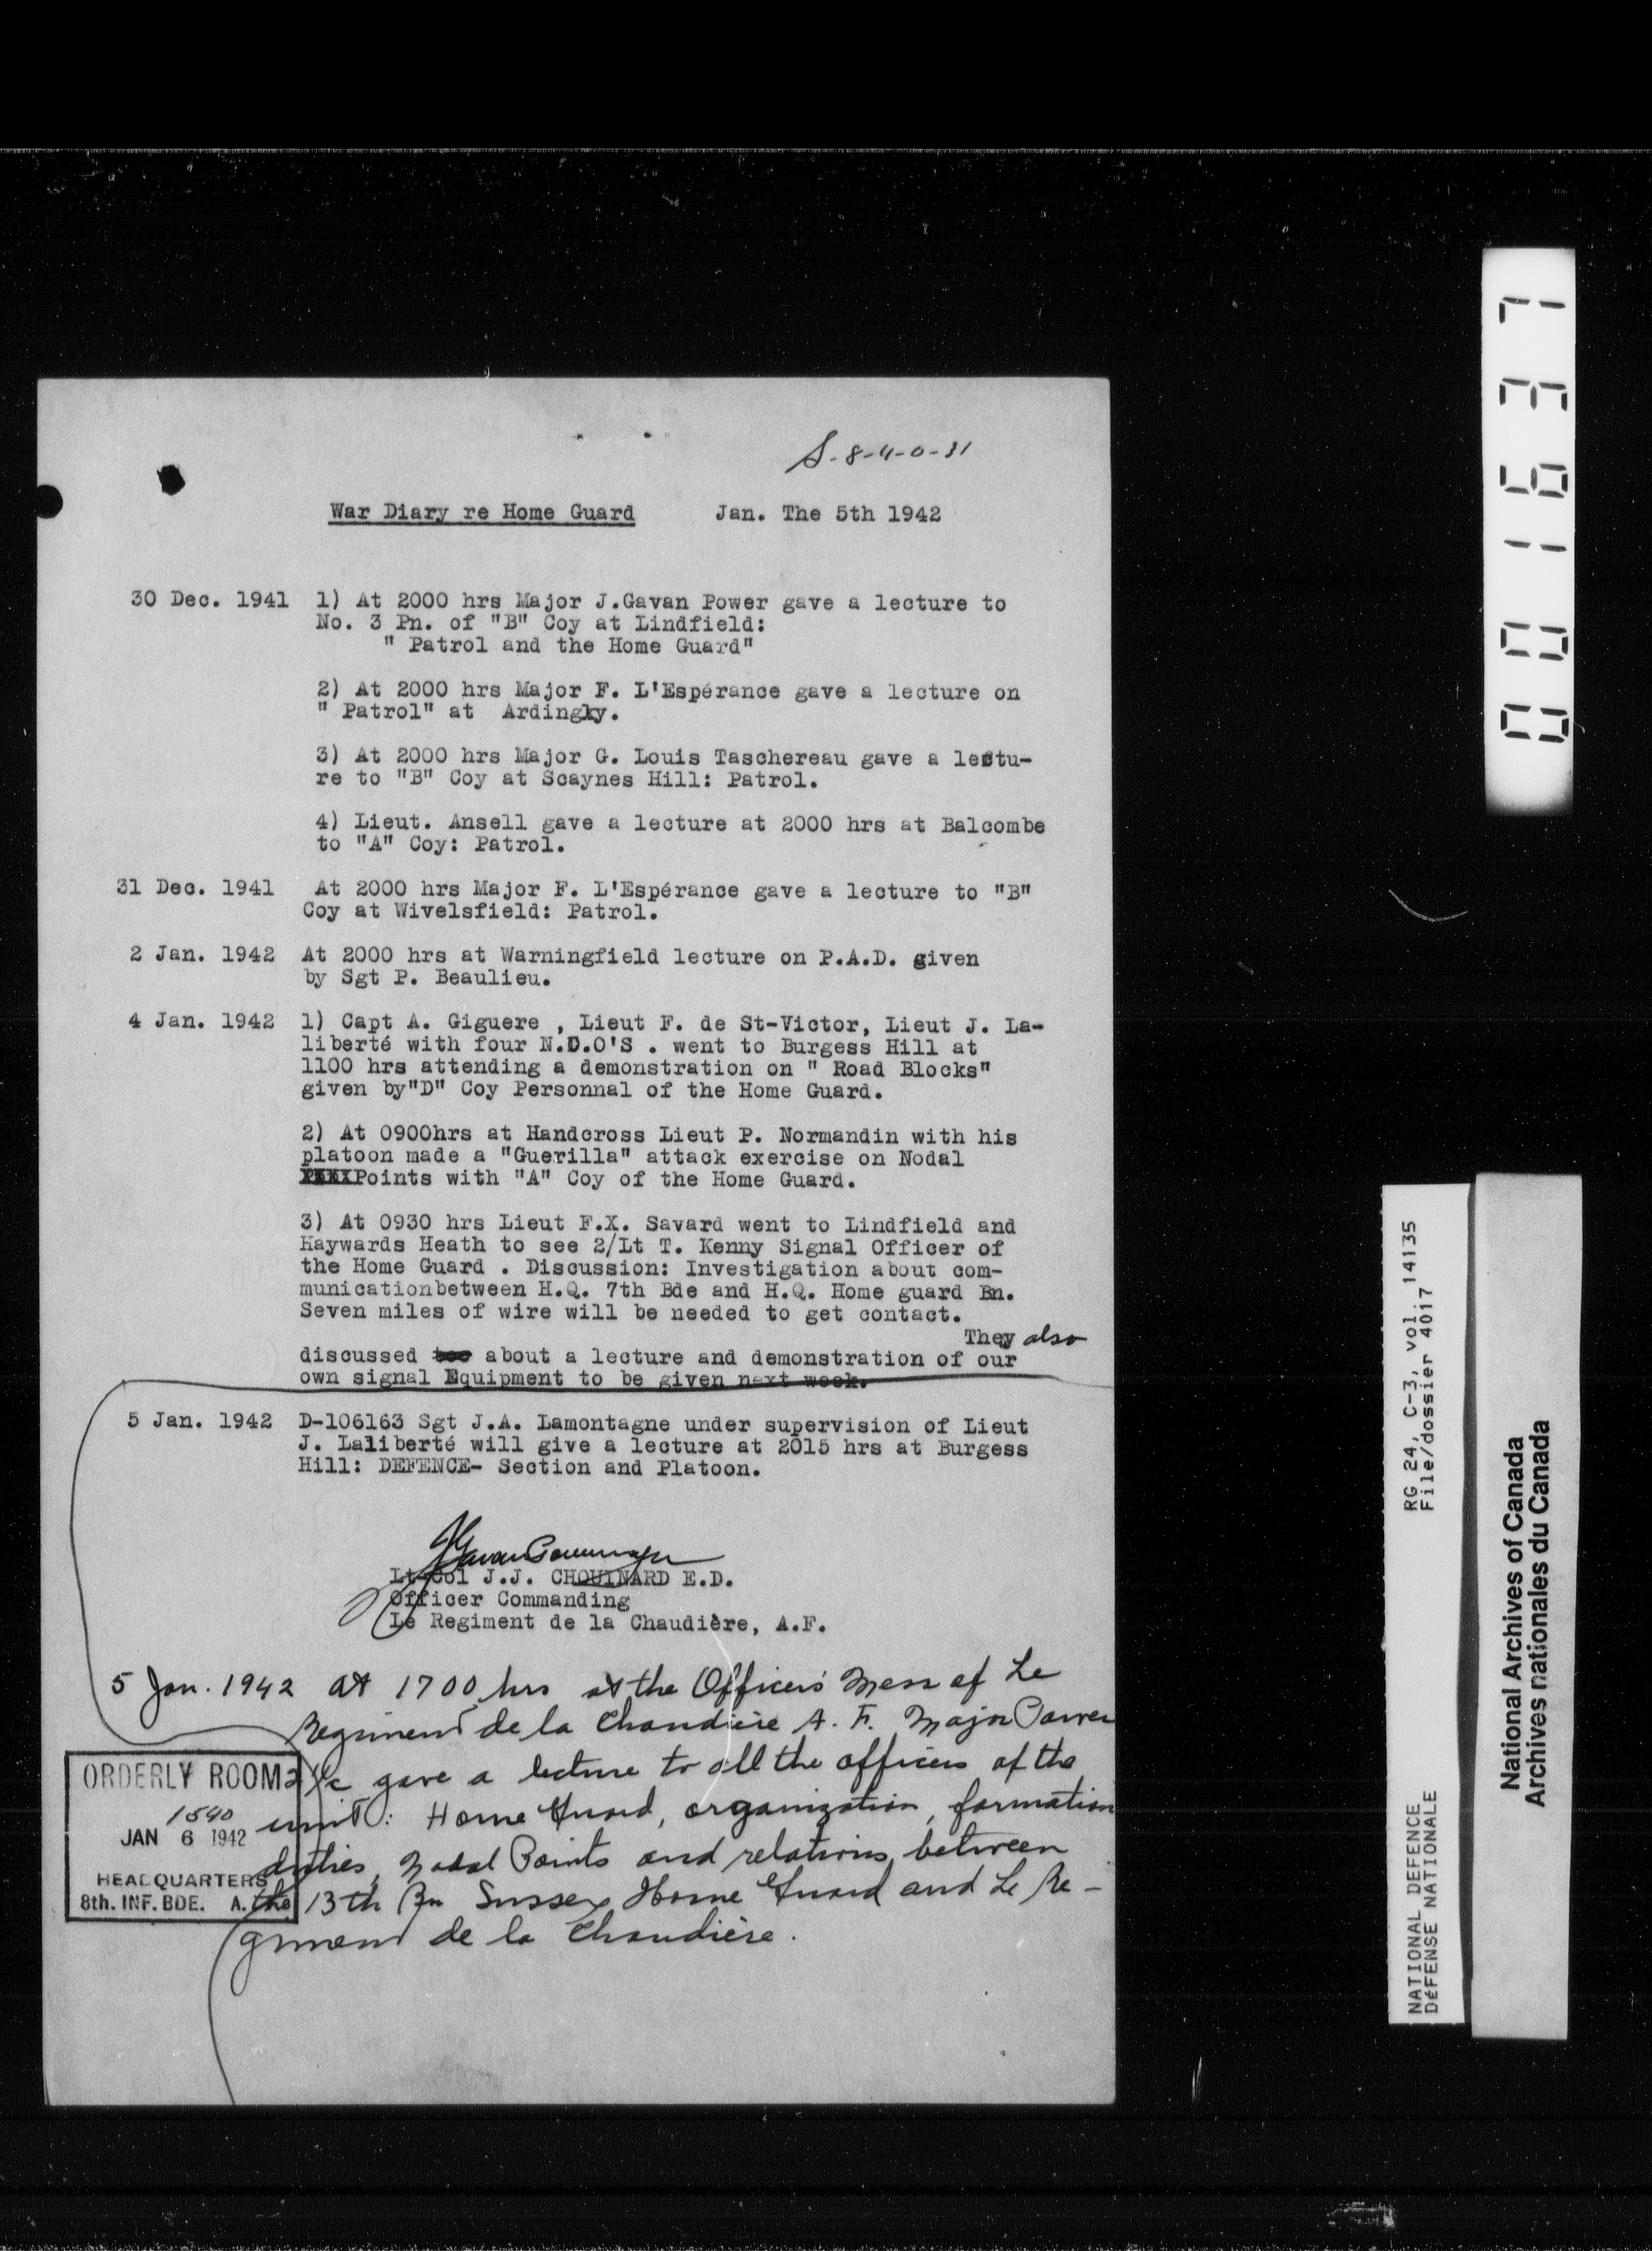 S-8-4-0-31
War Diary re Home Guard Jan. The 5th 1942
30 Dec. 1941 1) At 2000 hrs Major J.Gavan Power gave a lecture to
No. 3 Pn. of "B" Coy at Lindfield:
" Patrol and the Home Guard"
2) At 2000 hrs Major F. L'Espérance gave a lecture on
" Patrol" at Ardingly.
3) At 2000 hrs Major G. Louis Taschereau gave a lectu-
re to "B" Coy at Scaynes Hill: Patrol.
4) Lieut. Ansell gave a lecture at 2000 hrs at Balcombe
to "A" Coy: Patrol.
31 Dec. 1941 At 2000 hrs Major F. L'Espérance gave a lecture to "B"
Coy at Wivelsfield: Patrol.
2 Jan. 1942 At 2000 hrs at Warningfield lecture on P.A.D. given
by Sgt P. Beaulieu.
4 Jan. 1942 1) Capt A. Giguere , Lieut F. de St-Victor, Lieut J. La-
liberté with four N.D.O'S . went to Burgess Hill at
1100 hrs attending a demonstration on " Road Blocks"
given by"D" Coy Personnal of the Home Guard.
2) At 0900hrs at Handcross Lieut P. Normandin with his
platoon made a "Guerilla" attack exercise on Nodal
Points with "A" Coy of the Home Guard.
3) At 0930 hrs Lieut F.X. Savard went to Lindfield and
Haywards Heath to see 2/Lt T. Kenny Signal Officer of
the Home Guard . Discussion: Investigation about com-
municationbetween H.Q. 7th Bde and H.Q. Home guard Bn.
Seven miles of wire will be needed to get contact.
They also
discussed too about a lecture and demonstration of our
own signal Equipment to be given next week.
5 Jan. 1942 D-106163 Sgt J.A. Lamontagne under supervision of Lieut
J. Laliberté will give a lecture at 2015 hrs at Burgess
Hill: DEFENCE- Section and Platoon.
Lt-Col J.J. CHOUINARD E.D.
Officer Commanding
Le Regiment de la Chaudière, A.F.
5 Jan. 1942 at 1700 hrs at the Officers' Mess of Le
Regiment de la Chaudière A.F. Major Power
2/c gave a lecture to all the officers of the
unit: Home Guard, organization, formation
duties, Nodal Points and relations between
the 13th Bn Sussex Home Guard and Le Re-
giment de la Chaudière.
ORDERLY ROOM
1540
JAN 6 1942
HEADQUARTERS
8th. INF. BDE. A.
0011637
RG 24, C-3, vol. 14135
File/dossier 4017
NATIONAL DEFENCE
DÉFENSE NATIONALE
National Archives of Canada
Archives nationales du Canada